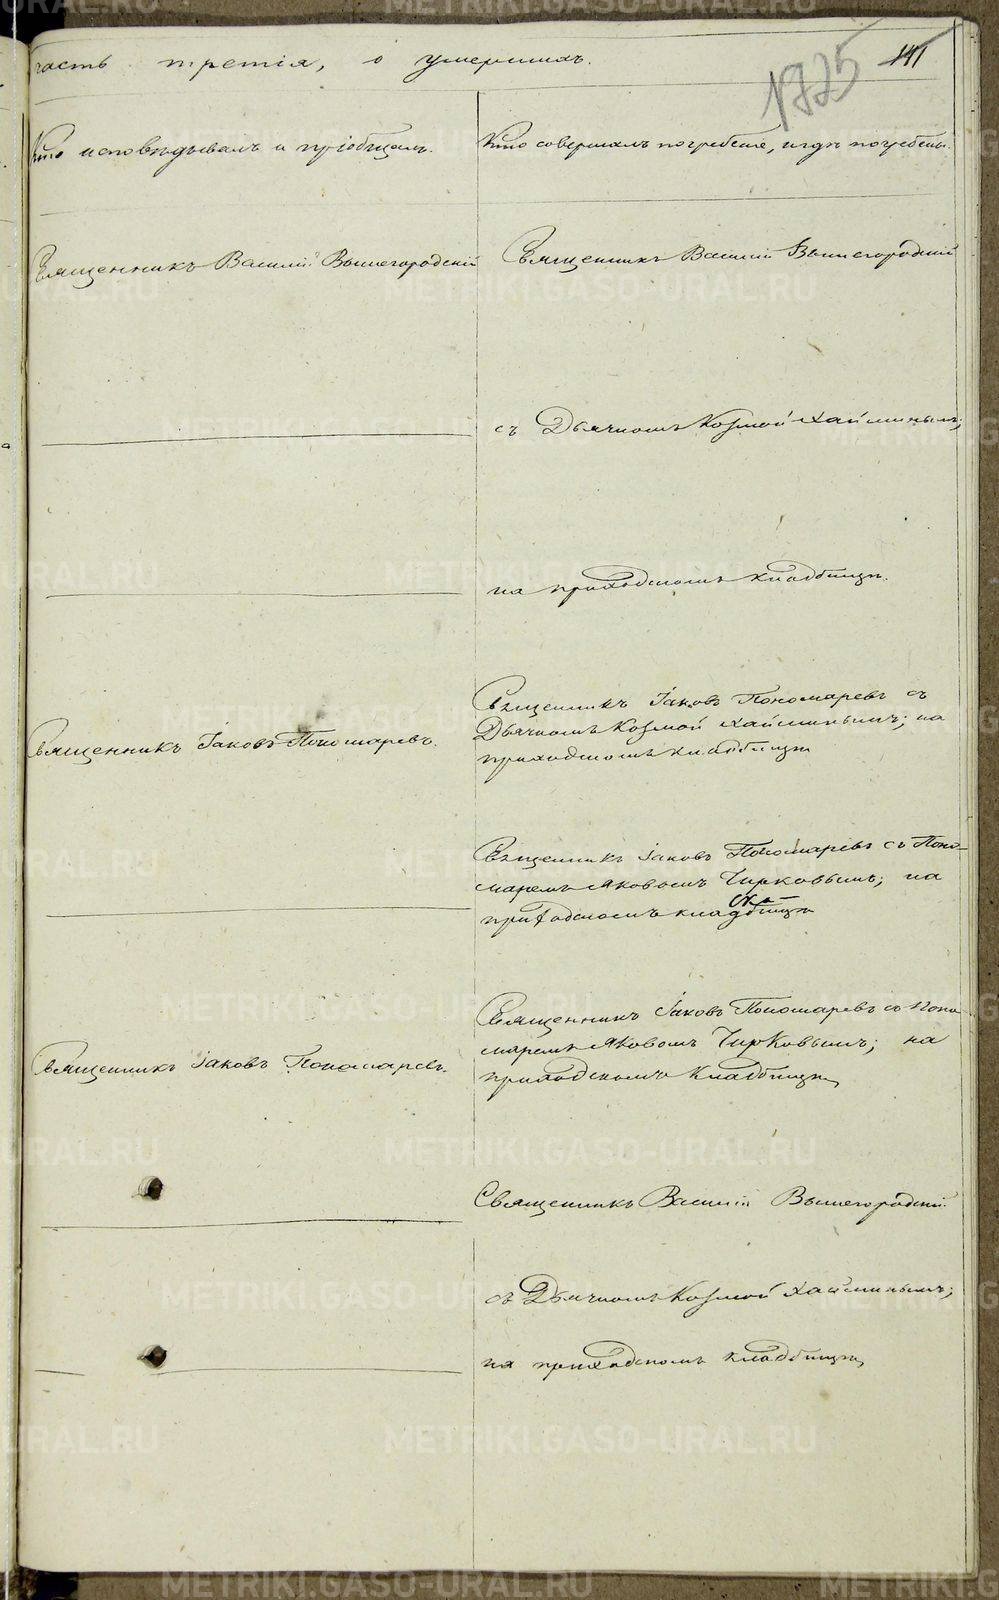 часть третія, о умершихъ.
1725
141
Кто исповѣдывалъ и пріобщалъ.
Кто совершалъ погребеніе, и гдѣ погребены.
Священникъ Василій Вышегородскій
Священникъ Василій Вышегородскій
съ Дьячкомъ Козмой Хайминымъ;
на приходскомъ кладбищѣ.
Священникъ Іаковъ Пономаревъ.
Священникъ Іаковъ Пономаревъ съ
Дьячкомъ Козмой Хайминымъ; на
приходскомъ кладбищѣ
Священникъ Іаковъ Пономаревъ съ Поно-
маремъ Яковомъ Чирковымъ; на
приходскомъ кладбищѣ
Священникъ Іаковъ Пономаревъ.
Священникъ Іаковъ Пономаревъ съ Поно
маремъ Яковомъ Чирковымъ; на
приходскомъ кладбищѣ
Священникъ Василій Вышегородскій
съ Дьячкомъ Козмой Хайминымъ;
на приходскомъ кладбищѣ
METRIKI.GASO-URAL.RU